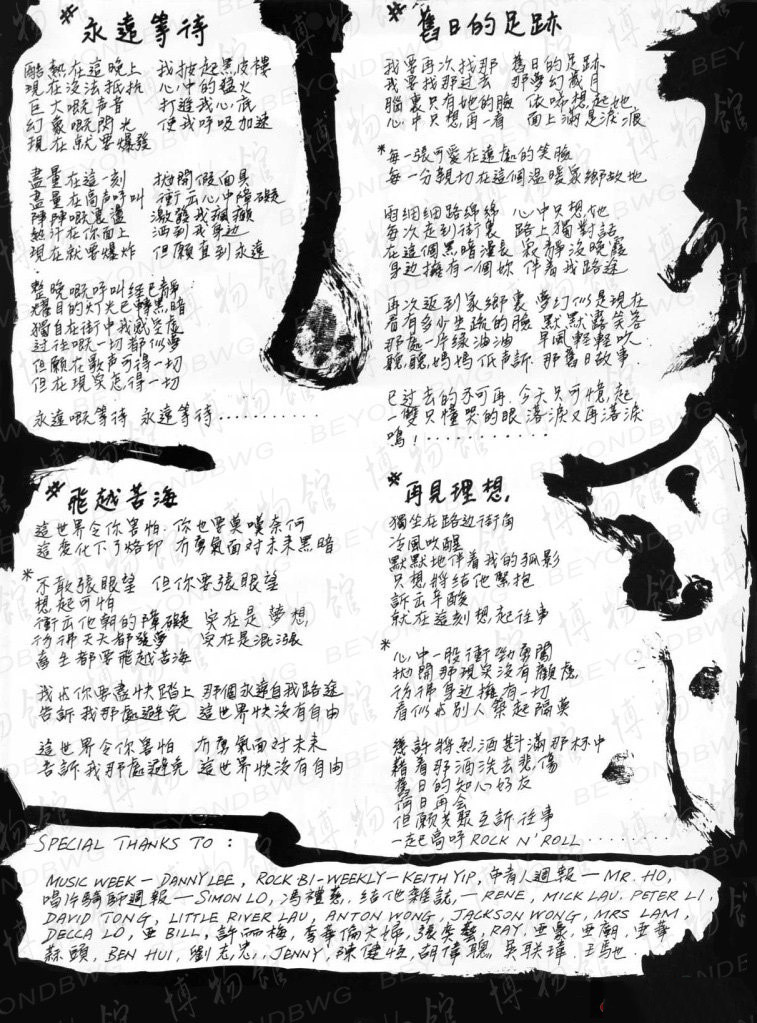 永遠等待
酷熱在這晚上 我披起黑皮褸
現在沒法抵抗 心中的猛火
巨大嘅声音 打進我心底
幻象嘅閃光 使我呼吸加速
現在就要爆發
盡量在這一刻 拋開假面具
盡量在高声呼叫 衝出心中障礙
陣陣嘅 激發我瘋癲
熱汗在你面上 洒到我身边
現在就要爆炸 但願直到永遠
整晚嘅呼叫經已靜
耀目的灯光已轉黑暗
獨自在街中我感空虛
过往嘅一切都似夢
但願在歌声可得一切
但在現实忘得一切
永遠嘅等待 永遠等待............
舊日的足跡
我要再次找那 舊日的足跡
我要找那过去 那夢幻歲月
腦裏只有她的臉 依唏想起她
心中只想再看 面上滿是淚痕
*每一張可愛在遠處的笑臉
每一分親切在這個溫暖家鄉故地
雨細細路綿綿 心中只想她
每次走到街裏 路上獨對話
在這個黑暗漫長 寂靜沒晚霞
身边擁有一個妳 伴着我路途
再次返到家鄉裏 夢幻似是現在
看有多少生疏的臉 默默露笑容
那處一片綠油油 早風輕輕吹
聽聽媽媽低声訴 那舊日故事
已过去的不可再 今天只可憶起
一雙只懂哭的眼 落淚又再落淚
嗚！...........
飛越苦海
這世界令你害怕 你也要莫嘆奈何
這变化下了烙印 冇勇氣面对未來黑暗
*不敢張眼望 但你要張眼望
想起可怕
衝出他朝的障礙 实在是夢想
彷彿天天都發夢 实在是混漲
蒼生都要飛越苦海
我求你要盡快踏上 那個永遠自我路途
告訴我那處避免 這世界快沒有自由
這世界令你害怕 冇勇氣面对未來
告訴我那處避免 這世界快沒有自由
再見理想
獨坐在路边街角
冷風吹醒
默默地伴着我的孤影
只想將结他緊抱
訴出辛酸
就在這刻想起往事
*
心中一股衝勁勇闖
拋開那現实沒有顧慮
彷彿身边擁有一切
看似与別人築起隔莫
幾許將烈酒斟滿那杯中
藉着那酒洗去悲傷
舊日的知心好友
何日再会
但願共聚互訴往事
一起高呼ROCK N' ROLL........
SPECIAL THANKS TO :
MUSIC WEEK — DANNY LEE, ROCK BI-WEEKLY — KEITH YIP, 中青人週報 — MR. HO,
唱片騎師週報 — SIMON LO, 馮禮慈, 结他雜誌, — RENE, MICK LAU, PETER LI,
DAVID TONG, LITTLE RIVER LAU, ANTON WONG, JACKSON WONG, MRS LAM,
DECCA LO, 亞 BILL, 許雨梅, 李華倫夫婦, 張 藝, RAY, 亞 , 亞 , 亞華
蒜頭, BEN HUI, 劉志忠, JENNY, 陳健恆, 胡偉聰, 吳联瑋, 王馬也.
BEYONDBWG 博物館